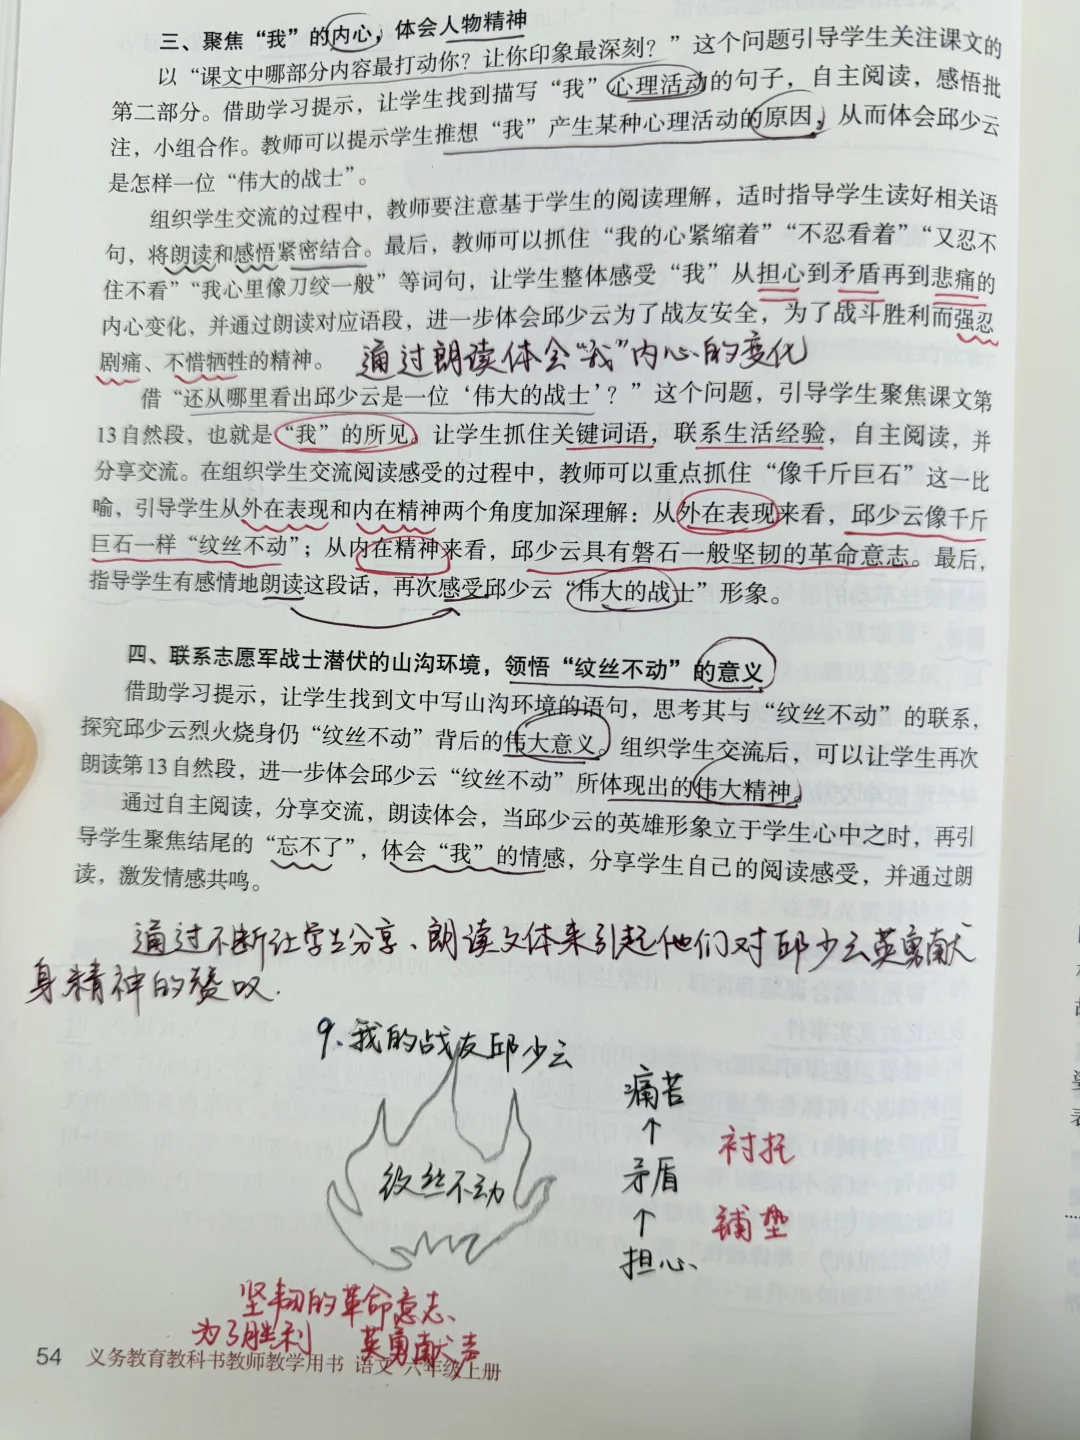 三、聚焦“我”的内心，体会人物精神
以“课文中哪部分内容最打动你？让你印象最深刻？”这个问题引导学生关注课文的
第二部分。借助学习提示，让学生找到描写“我”心理活动的句子，自主阅读，感悟批
注，小组合作。教师可以提示学生推想“我”产生某种心理活动的原因，从而体会邱少云
是怎样一位“伟大的战士”。
组织学生交流的过程中，教师要注意基于学生的阅读理解，适时指导学生读好相关语
句，将朗读和感悟紧密结合。最后，教师可以抓住“我的心紧缩着”“不忍看着”“又忍不
住不看”“我心里像刀绞一般”等词句，让学生整体感受“我”从担心到矛盾再到悲痛的
内心变化，并通过朗读对应语段，进一步体会邱少云为了战友安全，为了战斗胜利而强忍
剧痛、不惜牺牲的精神。
通过朗读体会“我”内心的变化
借“还从哪里看出邱少云是一位‘伟大的战士’？”这个问题，引导学生聚焦课文第
13自然段，也就是“我”的所见。让学生抓住关键词语，联系生活经验，自主阅读，并
分享交流。在组织学生交流阅读感受的过程中，教师可以重点抓住“像千斤巨石”这一比
喻，引导学生从外在表现和内在精神两个角度加深理解：从外在表现来看，邱少云像千斤
巨石一样“纹丝不动”；从内在精神来看，邱少云具有磐石一般坚韧的革命意志。最后，
指导学生有感情地朗读这段话，再次感受邱少云“伟大的战士”形象。
四、联系志愿军战士潜伏的山沟环境，领悟“纹丝不动”的意义
借助学习提示，让学生找到文中写山沟环境的语句，思考其与“纹丝不动”的联系，
探究邱少云烈火烧身仍“纹丝不动”背后的伟大意义。组织学生交流后，可以让学生再次
朗读第13自然段，进一步体会邱少云“纹丝不动”所体现出的伟大精神。
通过自主阅读，分享交流，朗读体会，当邱少云的英雄形象立于学生心中之时，再引
导学生聚焦结尾的“忘不了”，体会“我”的情感，分享学生自己的阅读感受，并通过朗
读，激发情感共鸣。
通过不断让学生分享、朗读文体来引起他们对邱少云英勇献
身精神的赞叹.
9、我的战友邱少云
纹丝不动
痛苦
↑
矛盾
↑
担心、
衬托
铺垫
坚韧的革命意志、
为了胜利 英勇献声
54 义务教育教科书教师教学用书 语文 六年级上册